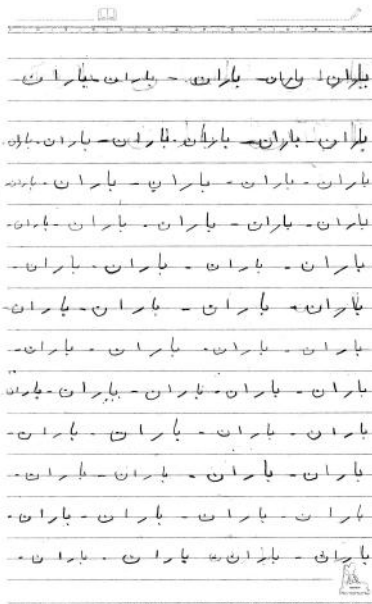 باران - باران - باران - باران - باران
باران - باران - باران - باران - باران - باران
باران - باران - باران - باران - باران
باران - باران - باران - باران - باران
باران - باران - باران - باران
باران - باران - باران - باران
باران - باران - باران - باران
باران - باران - باران - باران - باران
باران - باران - باران - باران
باران - باران - باران - باران
باران - باران - باران - باران
باران - باران - باران - باران